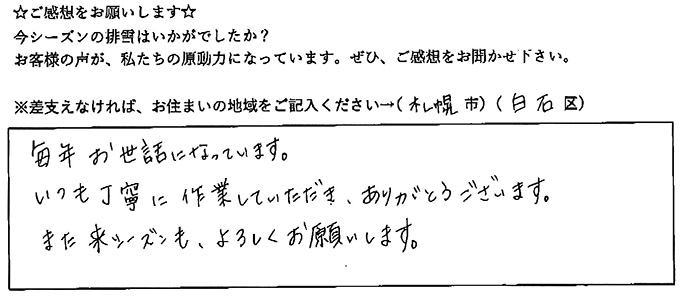 ☆ご感想をお願いします☆
今シーズンの排雪はいかがでしたか？
お客様の声が、私たちの原動力になっています。ぜひ、ご感想をお聞かせ下さい。
※差支えなければ、お住まいの地域をご記入ください→（札幌市）（白石区）
毎年お世話になっています。
いつも丁寧に作業していただき、ありがとうございます。
また来シーズンも、よろしくお願いします。